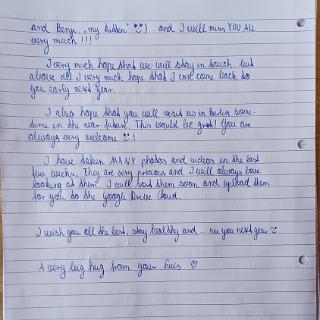 and Benji „my kitten" 😍) and I will miss YOU ALL
very much !!!
I very much hope that we will stay in touch but
above all I very much hope that I can come back to
you early next year.
I also hope that you will visit us in Berlin some-
time in the near future. This would be great! You are
always very welcome ☺!
I have taken MANY photos and videos in the last
few weeks. They are very precious and I will always love
looking at them. I will sort them soon and upload them
for you to the Google Drive Cloud.
I wish you all the best, stay healthy and .. see you next year ☺
A very big hug from your